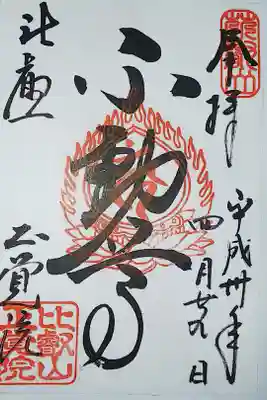 奉拝
平成卅年
四月廿九日
不動尊
比叡
正覺院
比叡山
正覺院